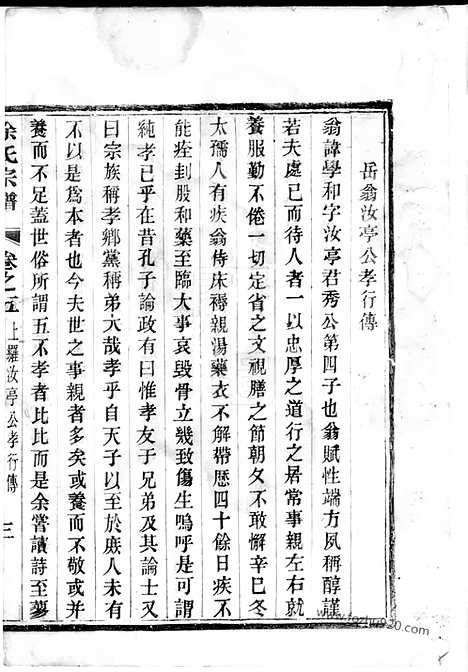 岳翁汝亭公孝行傳
翁諱學和字汝亭君秀公第四子也翁賦性端方夙稱醇謹
若夫處已而待人者一以忠厚之道行之居常事親左右就
養服勤不倦一切定省之文視膳之節朝夕不敢懈辛巳冬
太孺人有疾翁侍床褥親湯藥衣不解帶歷四十餘日疾不
能痊刲股和藥至臨大事哀毀骨立幾致傷生嗚呼是可謂
純孝已乎在昔孔子論政有曰惟孝友于兄弟及其論士又
曰宗族稱孝鄉黨稱弟大哉孝乎自天子以至於庶人未有
不以是爲本者也今夫世之事親者多矣或養而不敬或并
養而不足蓋世俗所謂五不孝者比比而是余嘗讀詩至蓼
余氏宗譜 卷之五 上羅汝亭公孝行傳 三
www.fozhu920.com